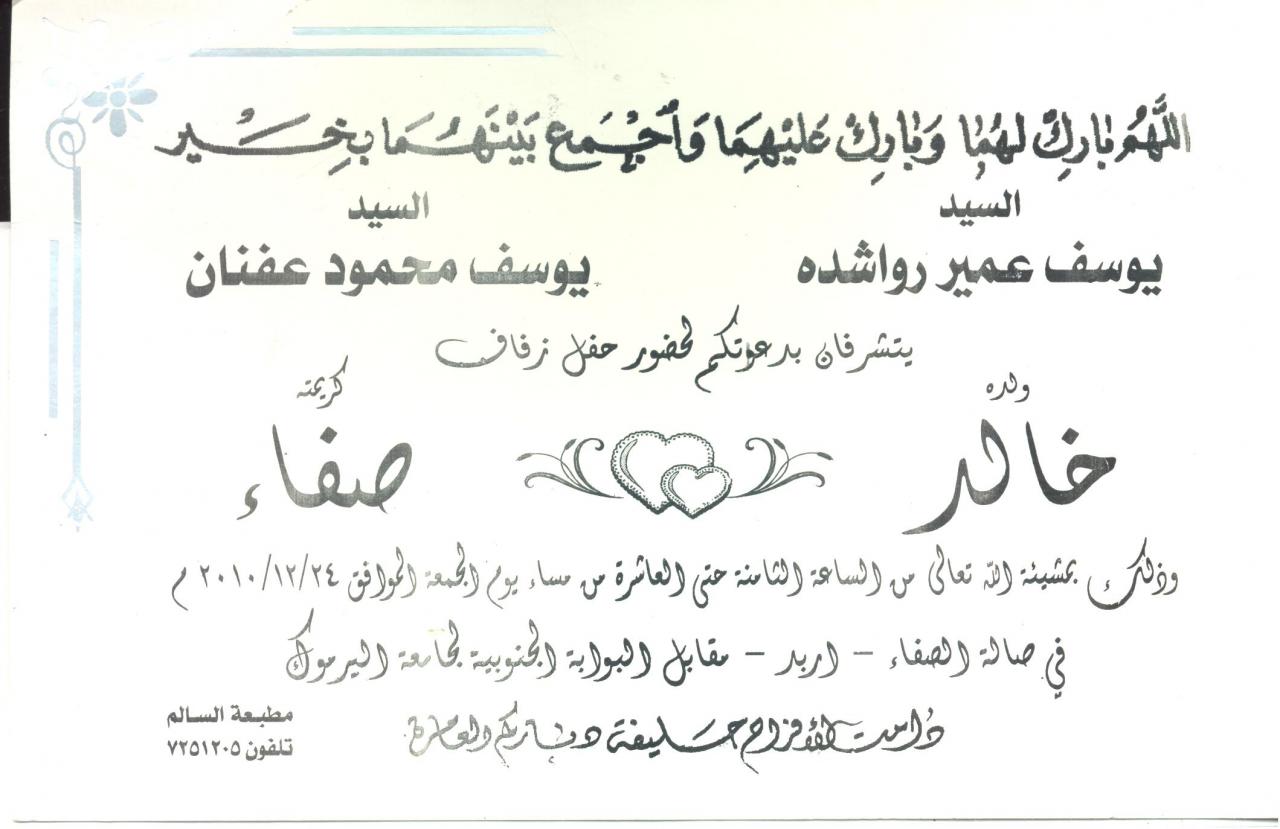 اللَّهُم بَارِكْ لَهُمَا وَبَارِكْ عَلَيْهِمَا وَأَجْمَع بَيْنَهُمَا بِخَيْر
السيد
السيد
يوسف عمير رواشده
يوسف محمود عفنان
يتشرفان بدعوتكم لحضور حفل زفاف
ولده
كريمته
خالد
صفاء
وذلك بمشيئة الله تعالى من الساعة الثامنة حتى العاشرة من مساء يوم الجمعة الموافق ٢٠١٠/١٢/٢٤ م
في صالة الصفاء - اربد - مقابل البوابة الجنوبية لجامعة اليرموك
دامت الأفراح حليفة دياركم العامرة
مطبعة السالم
تلفون ٧٢٥١٢٠٥